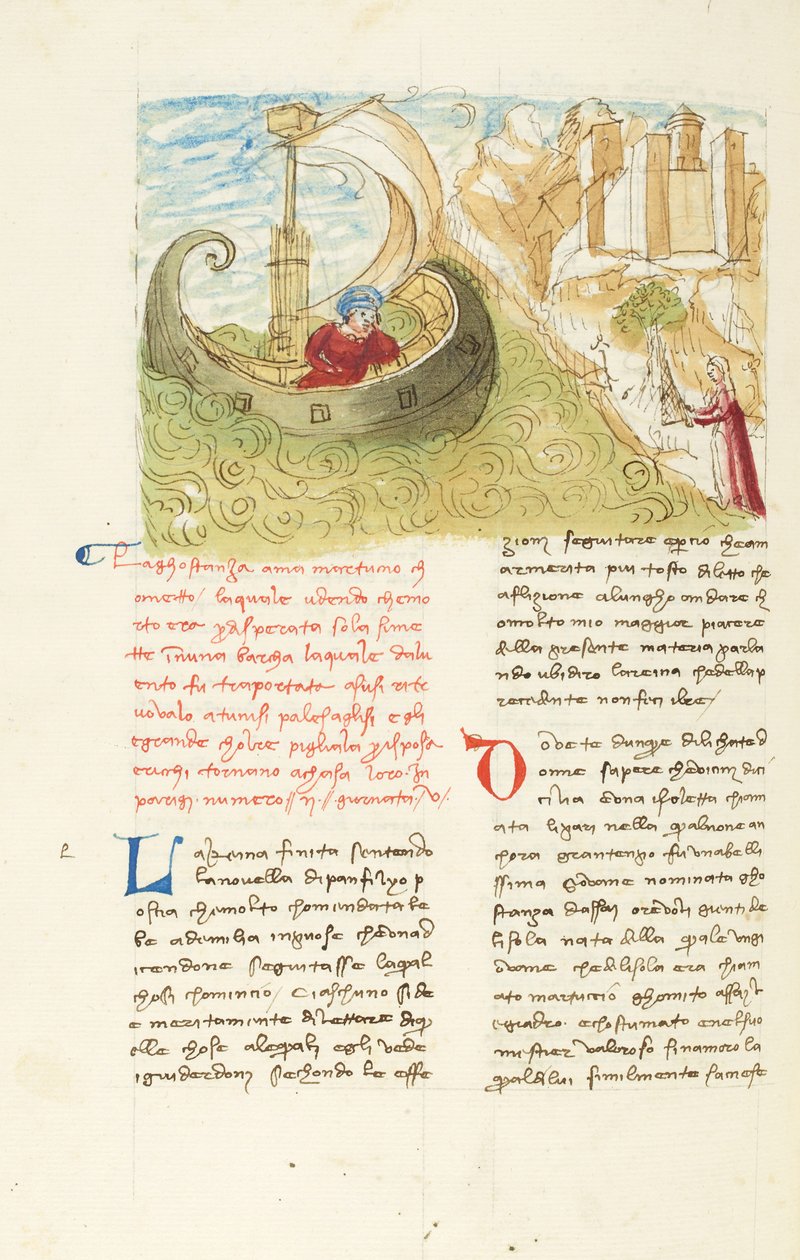 Ghostanza ama martucio ch
ometto / laquale udendo chemo
rto era p disperata sola si me
tte i nuna barcha laquale dalu
ento fu traportata a susi rit
uovalo a tunisi palesaglisi e gli
e grande cholre pigliala p isposa
e richi tornano a chasa loro. In
parigi. numero // n . // . giornata . V / .
La Reina finita sentendo
la novella di panfilyo p
ostia che molto chomendata le
be ad emilia inpuose che una d
icendone seguitasse laqual
chosi chomincio / Ciaschuno si de
e meritamente dilettare di q
elle chose ale quali egli vede
i guiderdoni sechondo le affe
zioni seguitare e p cio che am
are merita piu tosto diletto che
aflizione a lungho andare ch
o molto mio maggior piacere
della presente materia parla
ndo ubidiro la reina che della p
recedente non feci il re /
Dovete dunque dilichate d
onne sapere che vicin di ci
cilia e una isoletta chiam
ata lipari nella quale non e an
chora gran tenpo fu una belli
ssima giovane nominata gho
stanza d assai orevoli gienti de
lisola nata della quale un gi
ovane che delisola era chiam
ato martuccio ghomito assai l
egiadro. e chostumato e nel suo
mestier valoroso sinamoro la
qual di lui similmente sacese